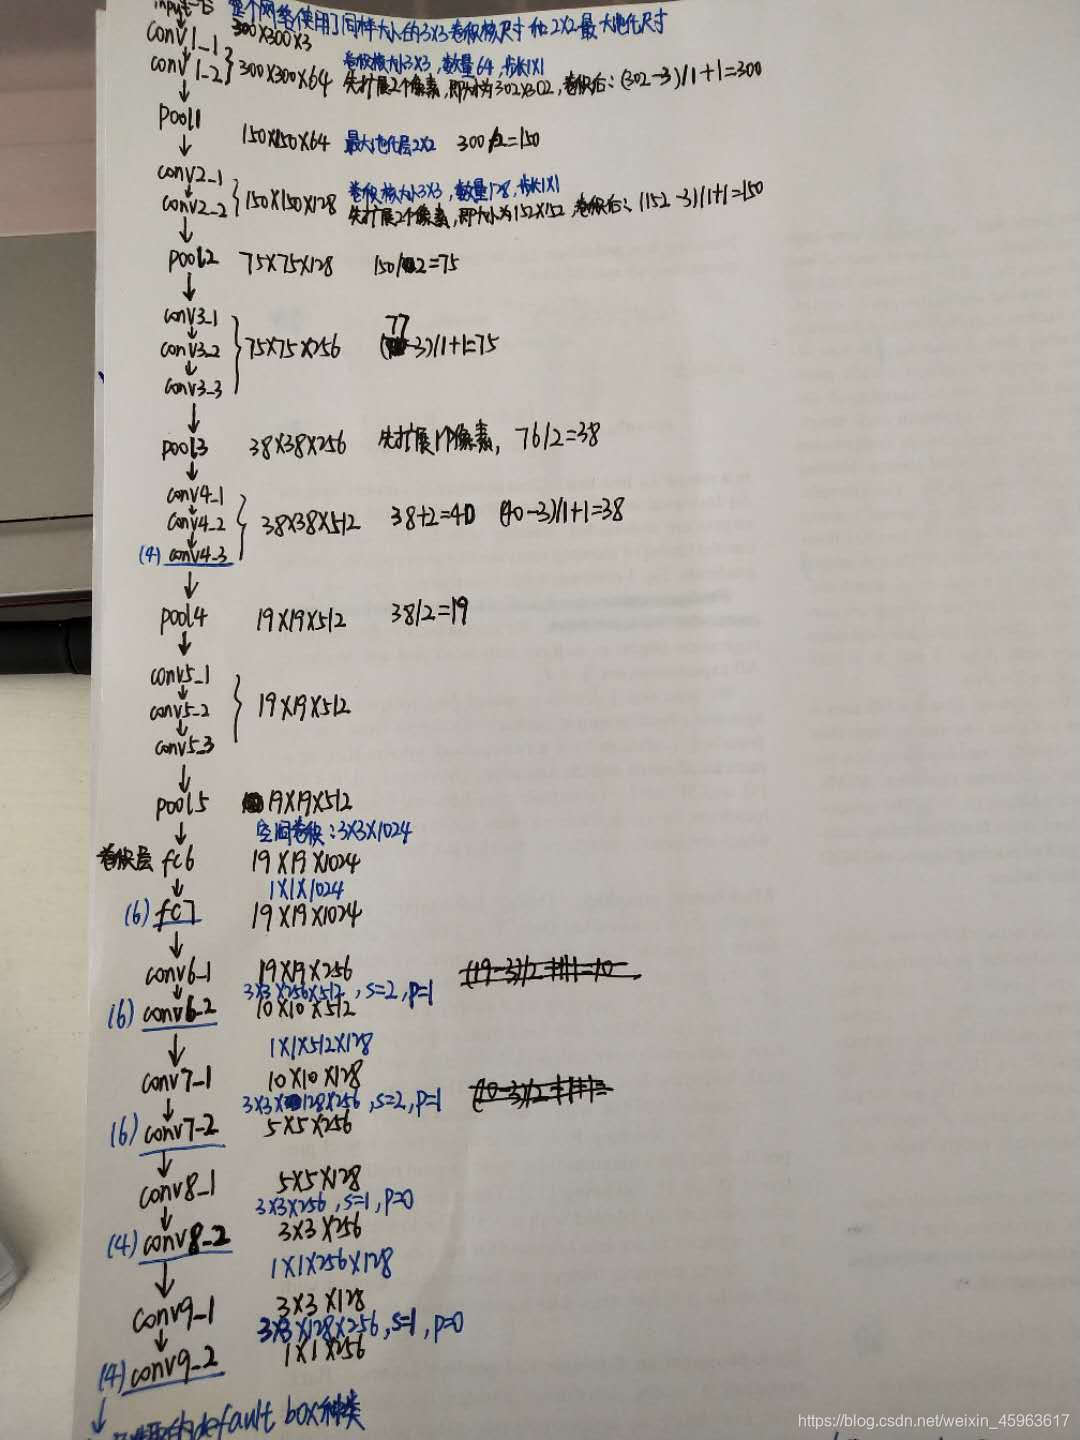 input 整个网络使用了同样大小的3X3卷积核尺寸和2X2最大池化尺寸
conv1_1 300X300X3
conv1-2 300X300X64 卷积核大小3X3,数量64,步长1X1
先扩展2个像素,即大小为302X302,卷积后:(302-3)/1+1=300
pool1 150X150X64 最大池化层2X2 300/2=150
conv2_1
conv2-2 150X150X128 卷积核大小3X3,数量128,步长1X1
先扩展2个像素,即大小为152X152,卷积后:(152-3)/1+1=150
pool2 75X75X128 150/2=75
conv3_1 77
conv3_2 75X75X256 ( -3)/1+1=75
conv3_3
pool3 38X38X256 先扩展1个像素,76/2=38
conv4_1
conv4_2 38X38X512 38+2=40 (40-3)/1+1=38
(4) conv4_3
pool4 19X19X512 38/2=19
conv5_1
conv5_2 19X19X512
conv5_3
pool5 19X19X512
空洞卷积:3X3X1024
卷积层 fc6 19X19X1024
1X1X1024
(6) fc7 19X19X1024
conv6-1 19X19X256
3X3X256X512,s=2,p=1
(6) conv6-2 10X10X512
1X1X512X128
conv7-1 10X10X128
3X3X128X256,s=2,p=1
(6) conv7-2 5X5X256
conv8-1 5X5X128
3X3X256,s=1,p=0
(4) conv8-2 3X3X256
1X1X256X128
conv9_1 3X3X128
3X3X128X256,s=1,p=0
(4) conv9-2 1X1X256
的default box种类
https://blog.csdn.net/weixin_45963617